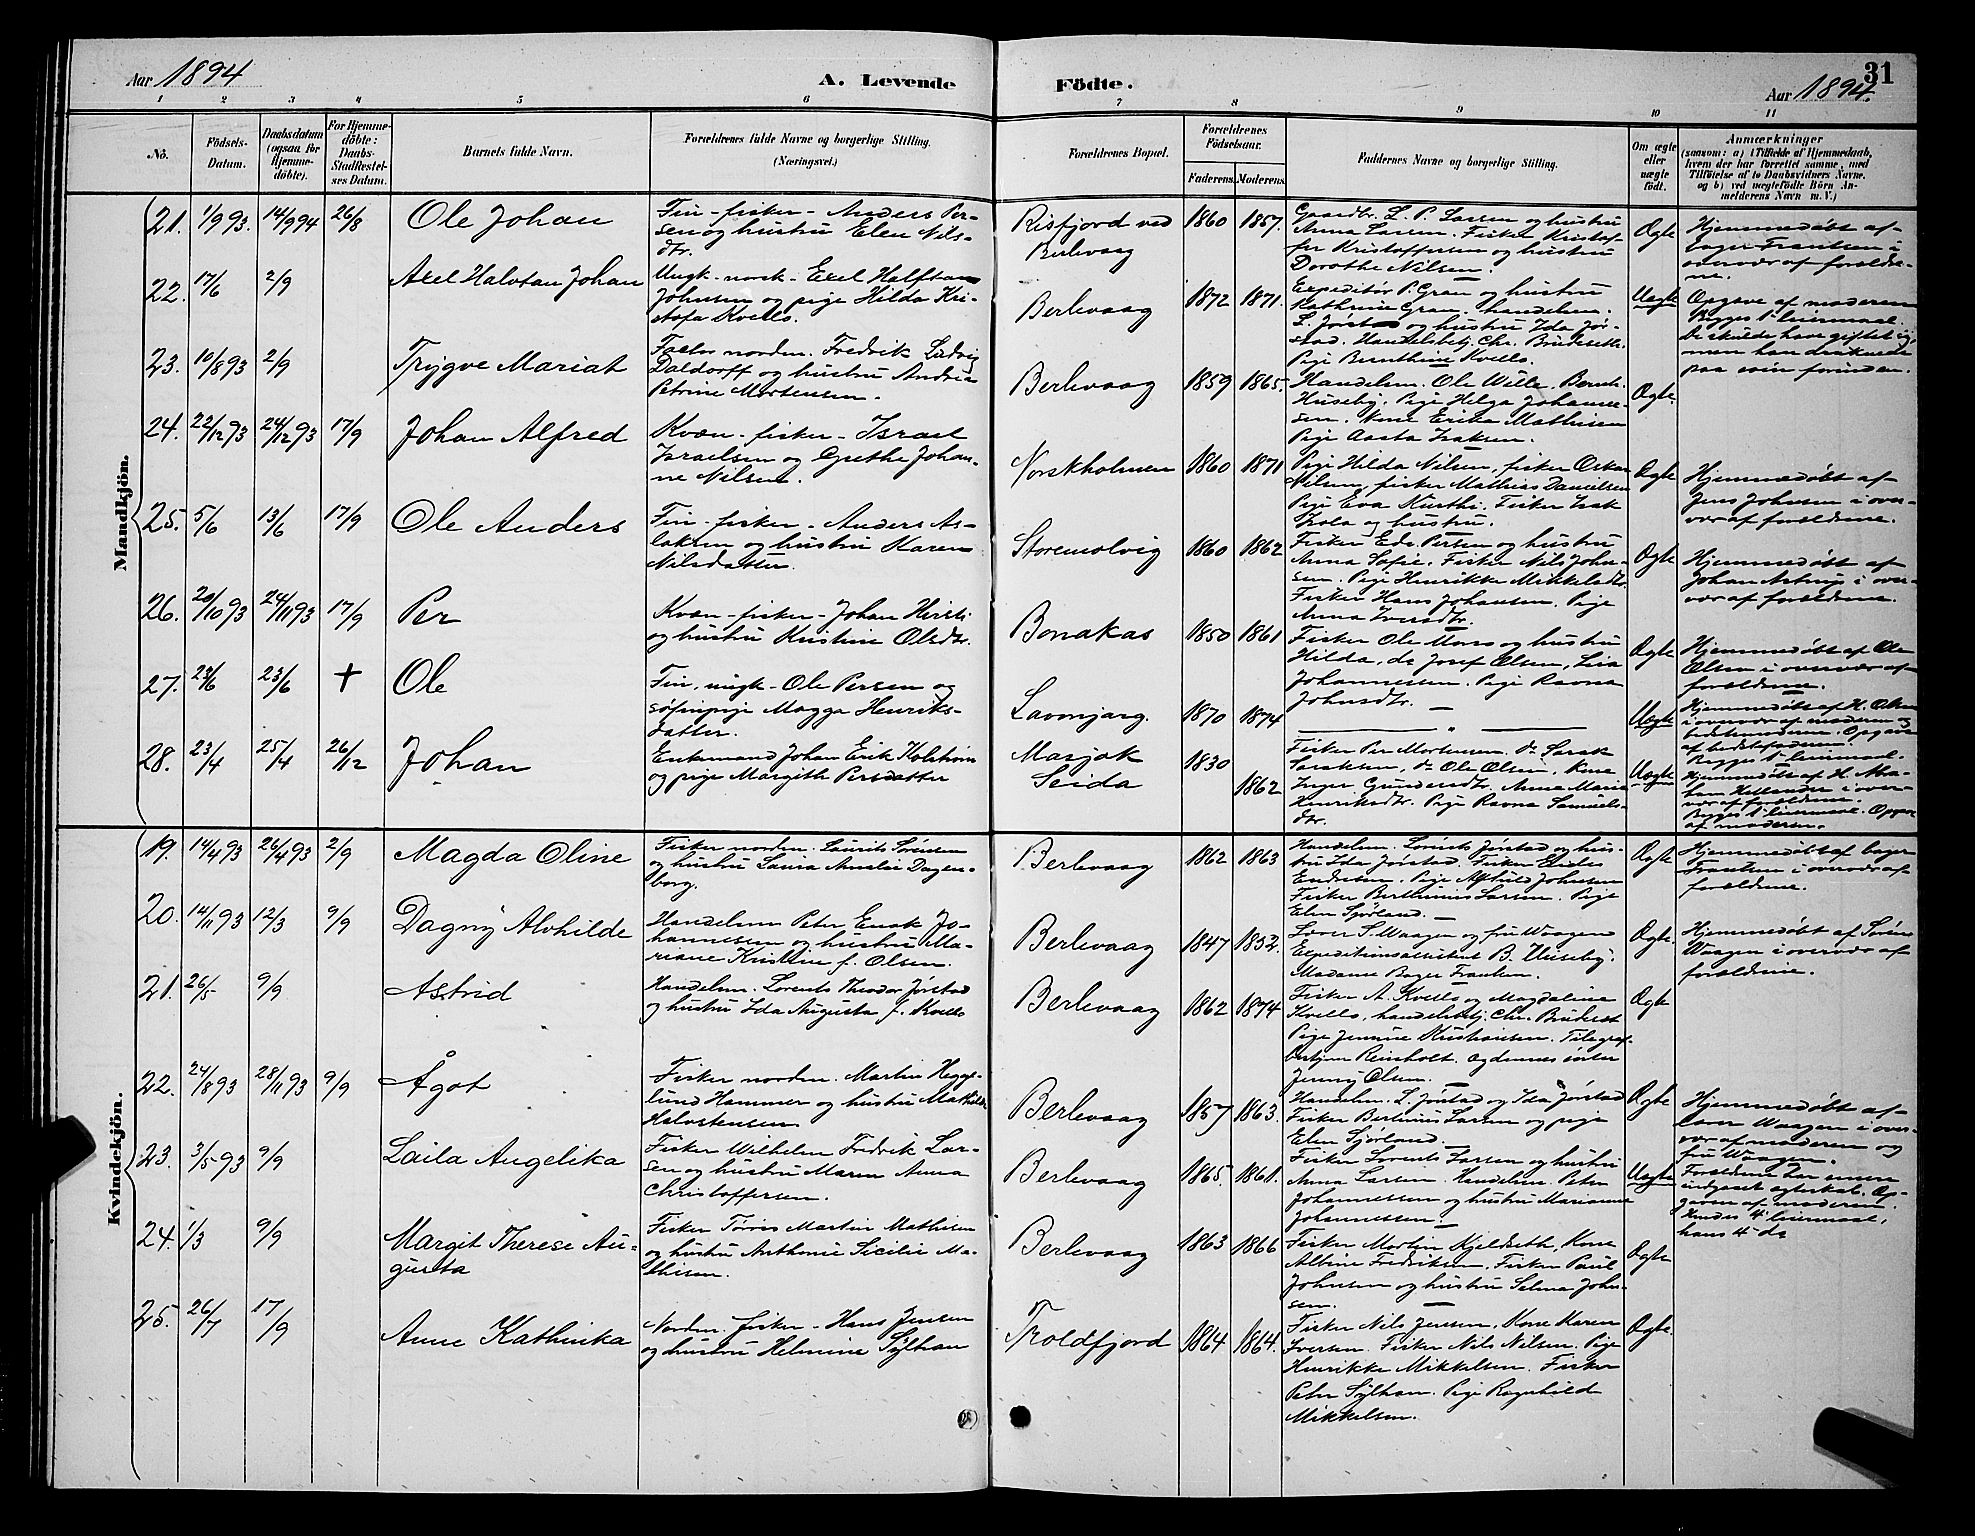 Aar 1894
A. Levende
Födte.
31
Aar 1894.
1 2 3 4 5 6 7 8 9 10 11
No.
Födsels-
Datum.
Daabsdatum
(ogsaa for
Hjemme-
döbte).
For Hjemme-
döbte:
Daabs-
Stadfæstel-
ses Datum.
Barnets fulde Navn.
Forældrenes fulde Navne og borgerlige Stilling.
(Næringsvei.)
Forældrenes Bopæl.
Forældrenes
Födselsaar.
Faderens. Moderens.
Faddernes Navne og borgerlige Stilling.
Om ægte
eller
uægte
födt.
Anmærkninger
(saasom: a) i Tilfælde af Hjemmedaab,
hvem der har forrettet samme, med
Tilföielse af to Daabsvidners Navne,
og b) ved uægtefödte Börn An-
melderens Navn m. V.)
Mandkjön.
21. 1/9 93. 14/9 94 26/8 Ole Johan
Fin - fisker - Anders Per-
sen og hustru Elen Nils-
dtr.
Risfjord ved
Berlevaag
1860 1857.
Gaardbr. L. P. Larsen og hustru
Anna Larsen. Fisker Kristof-
fer Kristoffersen og hustru
Dorothe Nilsen.
Ægte
Hjemmedøbt af
bager Frantsen i
overvær af foreldre-
ne.
22. 17/6 2/9 Axel Halvtan Johan
Ungk - norsk - Exel Halftan
Johnsen og pige Hilda Kri-
stofa Kvello.
Berlevaag 1872 1871.
Expeditør P. Gran og hustru
Kathrine Gran. Handelsm.
L. Jørstad og hustru Ida Jør-
stad. Handelsbetj. Chr. Brudeseth.
Pige Bernthine Kvello.
Uægte
Opgave af moderen
Begges 1ste leiermaal.
De skulde have giftet sig,
men han druknede
paa veien forinden.
23. 10/8 93 2/9 Trygve Mariat
Factor norden. Fredrik Ludvig
Daldorff og hustru Andrea
Petrine Mortensen.
Berlevaag 1859 1865.
Handelsm. Ole Wille. Bernh.
Huseby. Pige Helga Johanne-
sen. Kone Erika Mathisen
Pige Aasta Isaksen.
Ægte.
24. 22/12 93 24/12 93 17/9 Johan Alfred
Kvæn - fisker - Israel
Israelsen og Grethe Johan-
ne Nilsen.
Norskholmen 1860 1871
Pige Hilda Nilsen, fisker Oskar
Nilsen, fisker Mathias Danielsen
Pige Eva Kurthi. Fisker Isak
Isola og hustru.
Ægte
Hjemmedøbt af
Jens Johnsen i over-
vær af foreldrene.
25. 5/6 13/6 17/9 Ole Anders
Fin - fisker - Anders As-
laksen og hustru Karen
Nilsdatter.
Storemolvig 1860 1862
Fisker Edv. Persen og hustru
Anna Sofie. Fisker Nils John-
sen. Pige Henrikke Mikkelsdtr.
Fisker Hans Johansen. Pige
Anna Iversdtr.
Ægte
Hjemmedøbt af
Johan Astrup i over-
vær af foreldrene.
26. 20/10 93 24/11 93 17/9 Per
Kvæn - fisker - Johan Heisti
og hustru Kristine Olsdtr.
Bonakas 1850 1861
Fisker Ole Mons og hustru
Hilda, do Josef Olsen, Lisa
Johannessen. Pige Ravna
Johnsdtr.
Ægte
Hjemmedøbt af Ole
Olsen i overvær af
foreldrene.
27. 23/6 23/6 + Ole
Fin, ungk - Ole Persen og
søfinpige Magga Henriks-
datter.
Lavonjarg. 1870 1874
"
Uægte
Hjemmedøbt af H. Olsen
i overvær af moderen og
bedstemoderen. Opgave
af bedstefaderen.
Begges 1ste leiermaal.
28. 23/4 25/4 26/12 Johan
Enkemand Johan Erik Holstrøm
og pige Margith Persdatter
Masjok
Seida
1830
1862
Fisker Per Mortensen. do Isak
Isaksen, do Ole Olsen, Kone
Inger Gundersdtr. Anna Maria
Henriksdtr. Pige Ravna Samuels-
dtr.
Uægte
Hjemmedøbt af H. Ma-
i over-
vær af foreldrene.
Begges 1ste leiermaal. Opgave
af moderen.
Kvindekjön.
19. 14/4 93 26/4 93 2/9 Magda Oline
Fisker norden. Laurits Sørensen
og hustru Laura Amalie Dagen-
borg.
Berlevaag 1862 1863
Handelsm. Lorents Jørstad og hus-
tru Ida Jørstad. Fisker Endre
Endresen. Pige Alfhild Johnsen
Fisker Berthinus Larsen. Pige
Elen Sjørland.
Ægte
Hjemmedøbt af bager
Frantsen i overvær af
foreldrene.
20. 14/11 93 12/3 9/9 Dagny Alvhilde
Handelsm Peter Enok Jo-
hannessen og hustru Ma-
riane Kristine f. Olsen.
Berlevaag 1847 1852.
Lærer S. Waagen og fru Waagen
Expeditionsassistent B. Huseby.
Madame Bager Frantsen.
Ægte.
Hjemmedøbt af Søren
Waagen i overvær af
foreldrene.
21. 26/5 9/9 Astrid
Handelsm. Lorents Theodor Jørstad
og hustru Ida Augusta f. Kvello
Berlevaag 1862 1874
Fisker A. Kvello og Magdaline
Kvello, handelsbetj. Chr. Brudeset
Pige Jennine Kristiansen. Telegraf-
bestyrer Reinholt. Ogdennes søster
Jenny Olsen.
Ægte
22. 24/8 93 28/11 93 9/9 Ågot
Fisker norden. Martin Hegge-
lund Hammer og hustru Mathilde
Halvorsensen
Berlevaag 1857 1863.
Handelsm. L. Jørstad og Ida Jørstad
Fisker Berthinus Larsen og pige
Elen Sjørland.
Ægte
Hjemmedøbt af
lærer Waagen i over-
vær af moderen og
fru Waagen.
23. 3/5 93 9/9 Laila Angelika
Fisker Wilhelm Fredrik Lar-
sen og hustru Maren Anna
Christoffersen.
Berlevaag 1865. 1861.
Fisker Lorents Larsen og hustru
Anna Larsen. Handelsm. Peter
Johannessen og hustru Marianne
Johannessen.
Uægte
Foreldrene har senere
indgaaet egteskab. Op-
gaven af moderen.
Hendes 4de leiermaal,
hans 4de do
24. 1/3 9/9 Margit Therese Au-
gusta
Fisker Tørres Martin Mathisen
og hustru Anthonie Sicilie Ma-
thisen.
Berlevaag 1863 1866
Fisker Martin Kjeldseth, Kone
Albine Fredriksen. Fisker Paul
Johnsen og hustru Selma John-
sen.
Ægte
25. 26/7 17/9 Anne Kathinka
Norden. fisker - Hans Jensen
og hustru Helmine Sylhan
Troldfjord 1864 1864.
Fisker Nils Jensen, Kone Karen
Iversen. Fisker Nils Nilsen. Pige
Henrikke Mikkelsen. Fisker
Peter Sylhan. Pige Ragnhild
Mikkelsen.
Ægte.